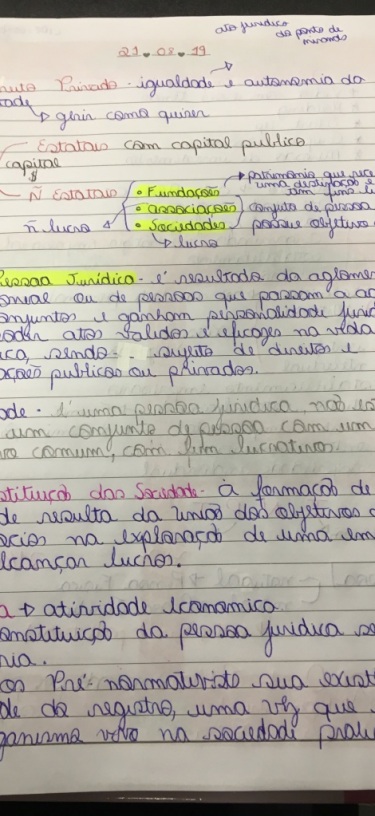 ato jurídico
do ponto de
miranda
21.08.19
Privado - igualdade e autonomia da
↳ gerir como quiser
Estatais com capital publico
capital
Ñ Estatais
• Fundações
→ patrimonio que
uma destinação e
tem fins
• associações
conjuto de pessoa
ñ lucro
• Sociedades
possue objetivo
↳ lucro
Pessoa Jurídica - é resultado da aglome
ou de pessoas que passam a
conjuntos e ganham personalidade juríd
atos validos e eficazes na vida
sendo - sujeito de direitos e
publicas ou privadas.
ade - é uma pessoa juridica não
um conjunto de pessoa com um
comum, com fim lucrativos
stituição das Sociedade - à formação de
de resulta da união dos objetivos
ocios na exploração de uma em
lcançar lucros.
a → atividade economica
onstituição da pessoa juridica se
nia.
os Pré-
sua exist
de do registro, uma vez que
ganismo vivo na sociedade